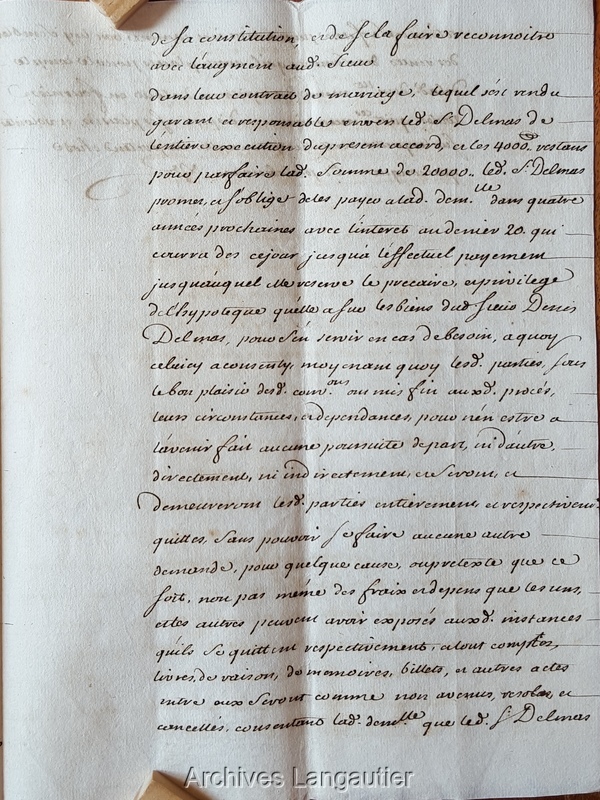 de sa constitution, et de se la faire reconnoitre
avec l'augment aud. Sieur
dans leur contrat de mariage, lequel s'est rendu
garant et responsable envers led. Sr. Delmas de
l'entiere execution du present accord, et les 4000.. restans
pour parfaire lad. Somme de 20000.. led. Sr. Delmas
promet, et s'oblige de les payer a lad. demlle. dans quatre
années prochaines avec l'interet au denier 20. qui
courra des ce jour jusqu'a l'effectuel payement
jusqu'auquel elle reserve le precaire, et privilege
de l'hypoteque qu'elle a sur les biens dud. Sieur Denis
Delmas, pour s'en servir en cas de besoin, a quoy
celuicy a consenty, moyenant quoy lesd. parties, sous
le bon plaisir desd. com.ons ont mis fin auxd. procés,
leurs circonstances, et dependances, pour n'en estre a
l'avenir fait aucune poursuite de part, ni dautre,
directement, ni indirectement, et seront, et
demeureront lesd. parties entierement et respectivemt
quittes, sans pouvoir se faire aucune autre
demande, pour quelque cause, ou pretexte que ce
soit, non pas méme des fraix et depens que les uns,
et les autres peuvent avoir exposés auxd. instances
qu'ils se quittent respectivement, et tout comptes,
livres de raison, de memoires, billets, et autres actes
entre eux seront comme non avenus, resolus, et
cancellés, consentant lad. demlle que led. Sr. Delmas
Archives Langautier